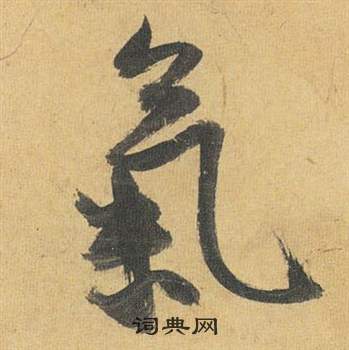 氣
词典网